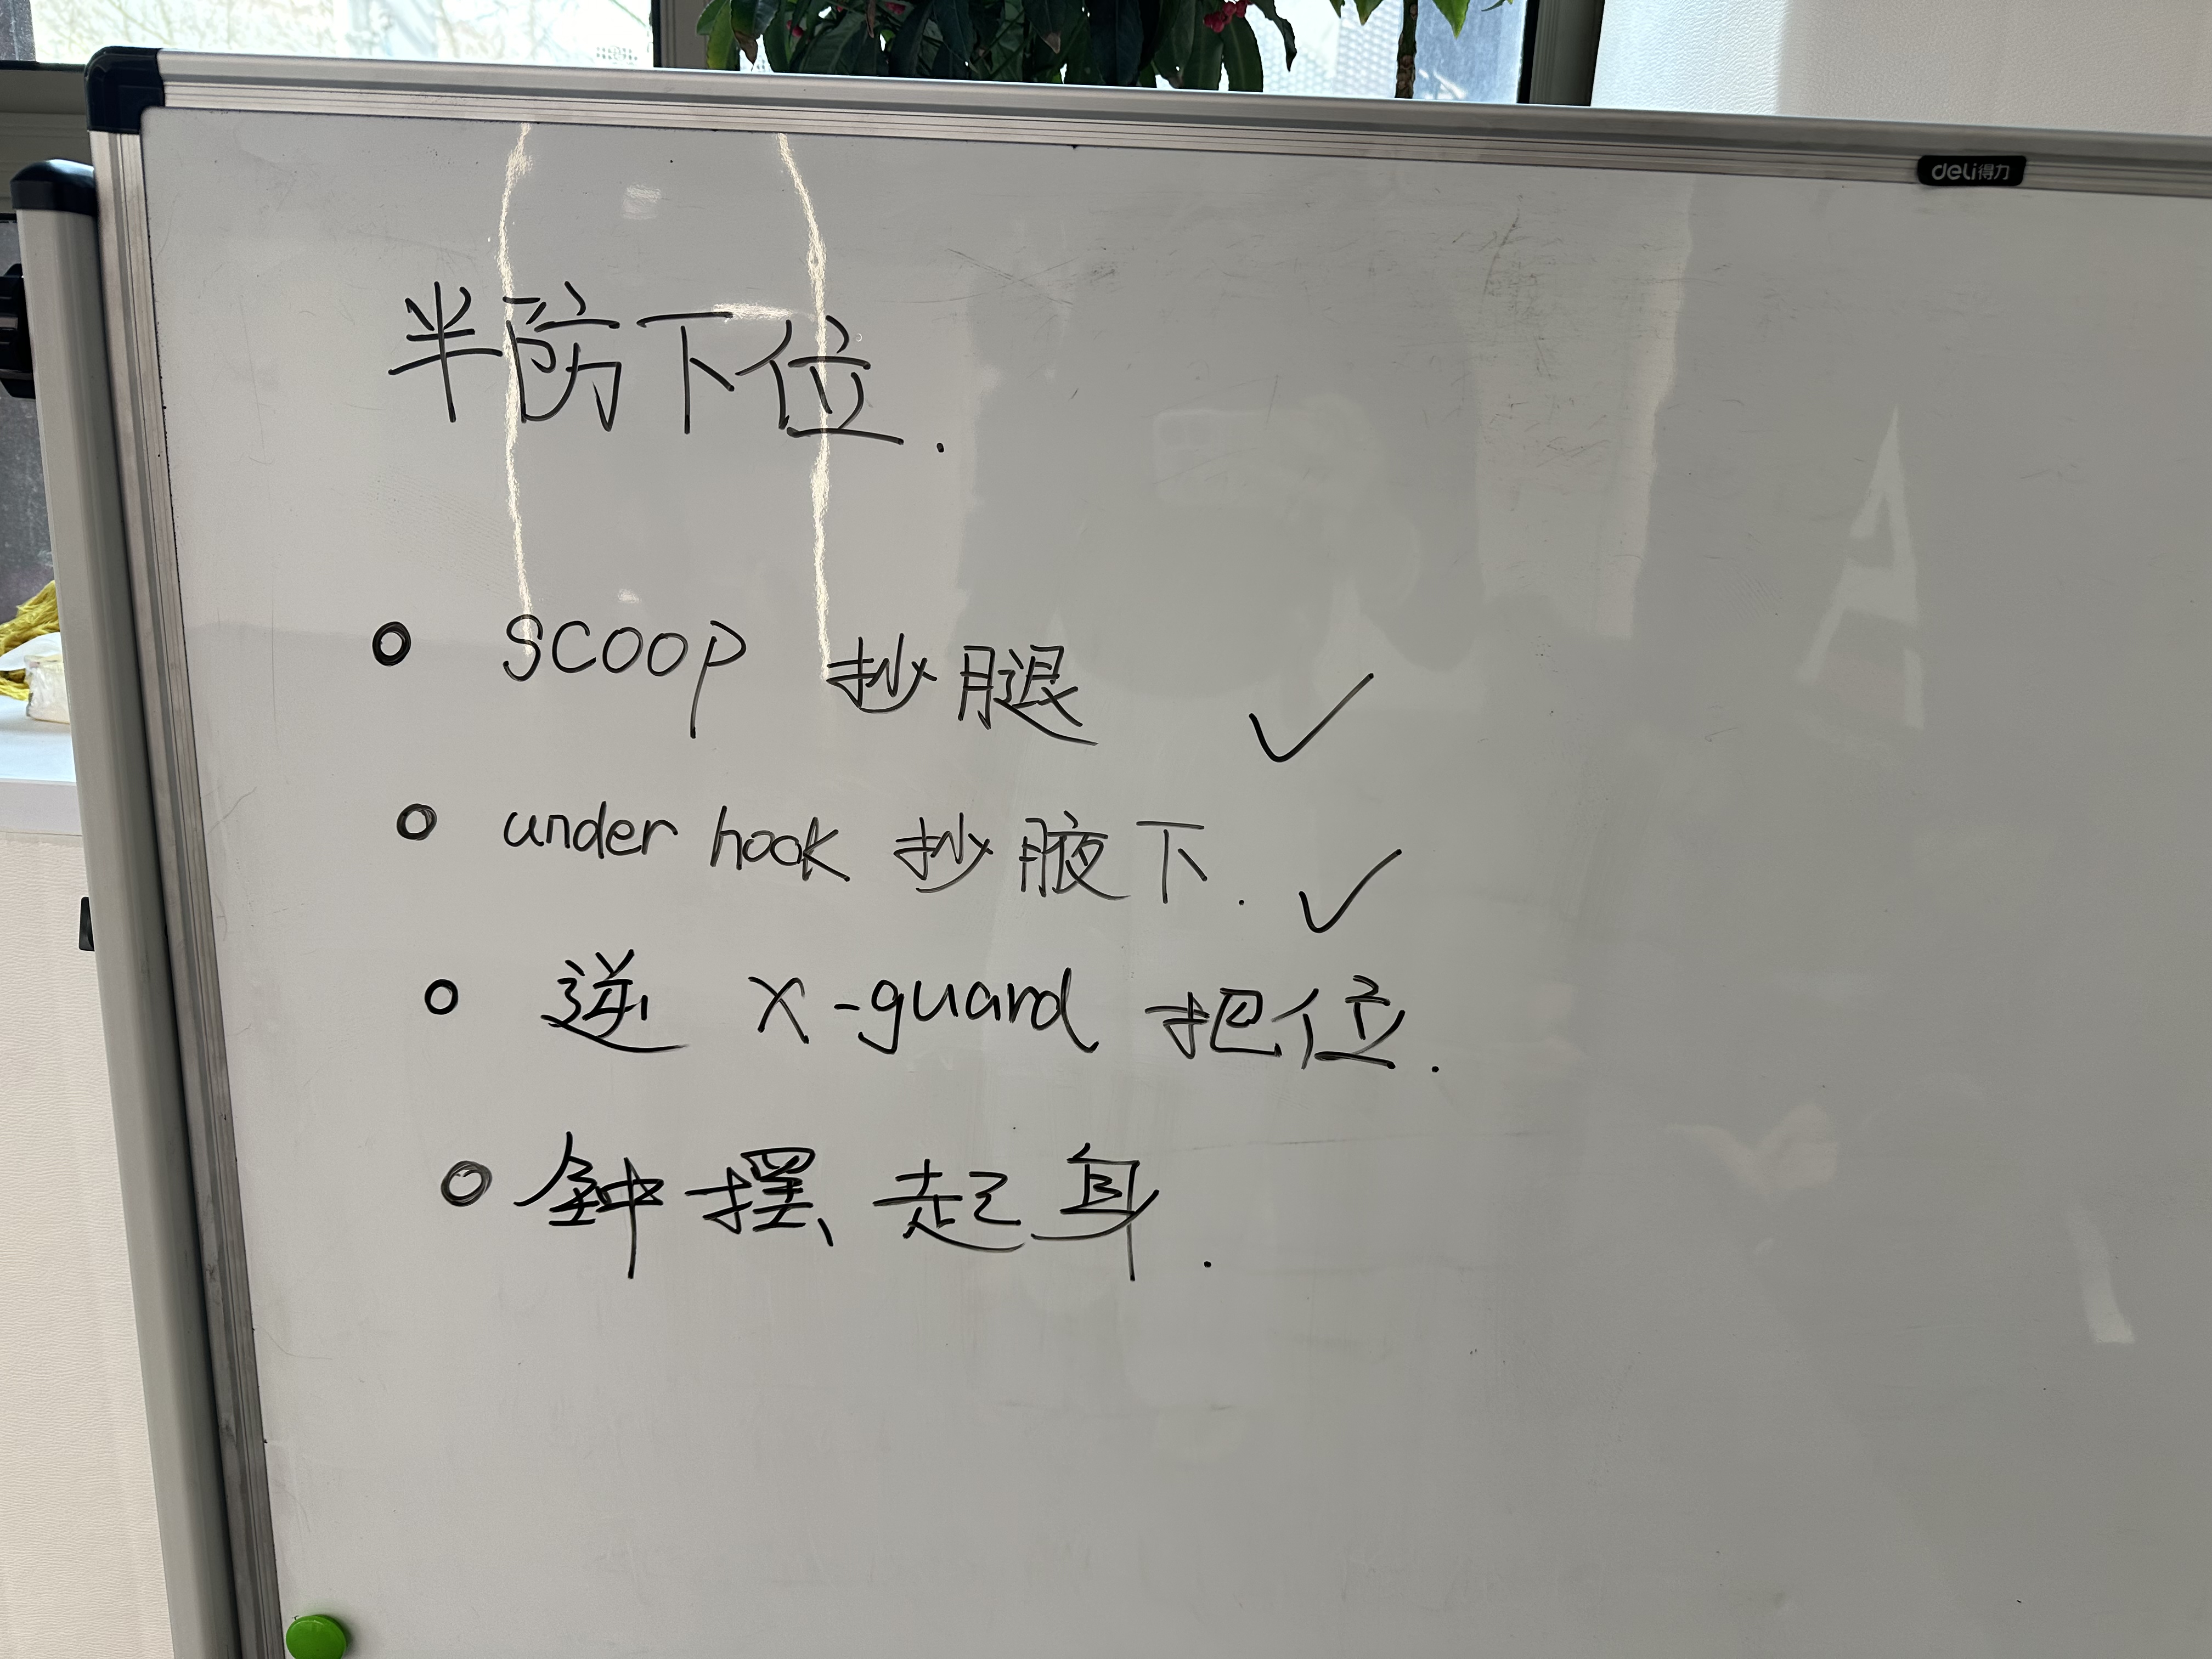 deli得力
半防下位.
○ SCOOP 抄腿 ✓
○ under hook 抄腋下. ✓
○ 逆 X-guard 把位.
○ 鈡摆起身.